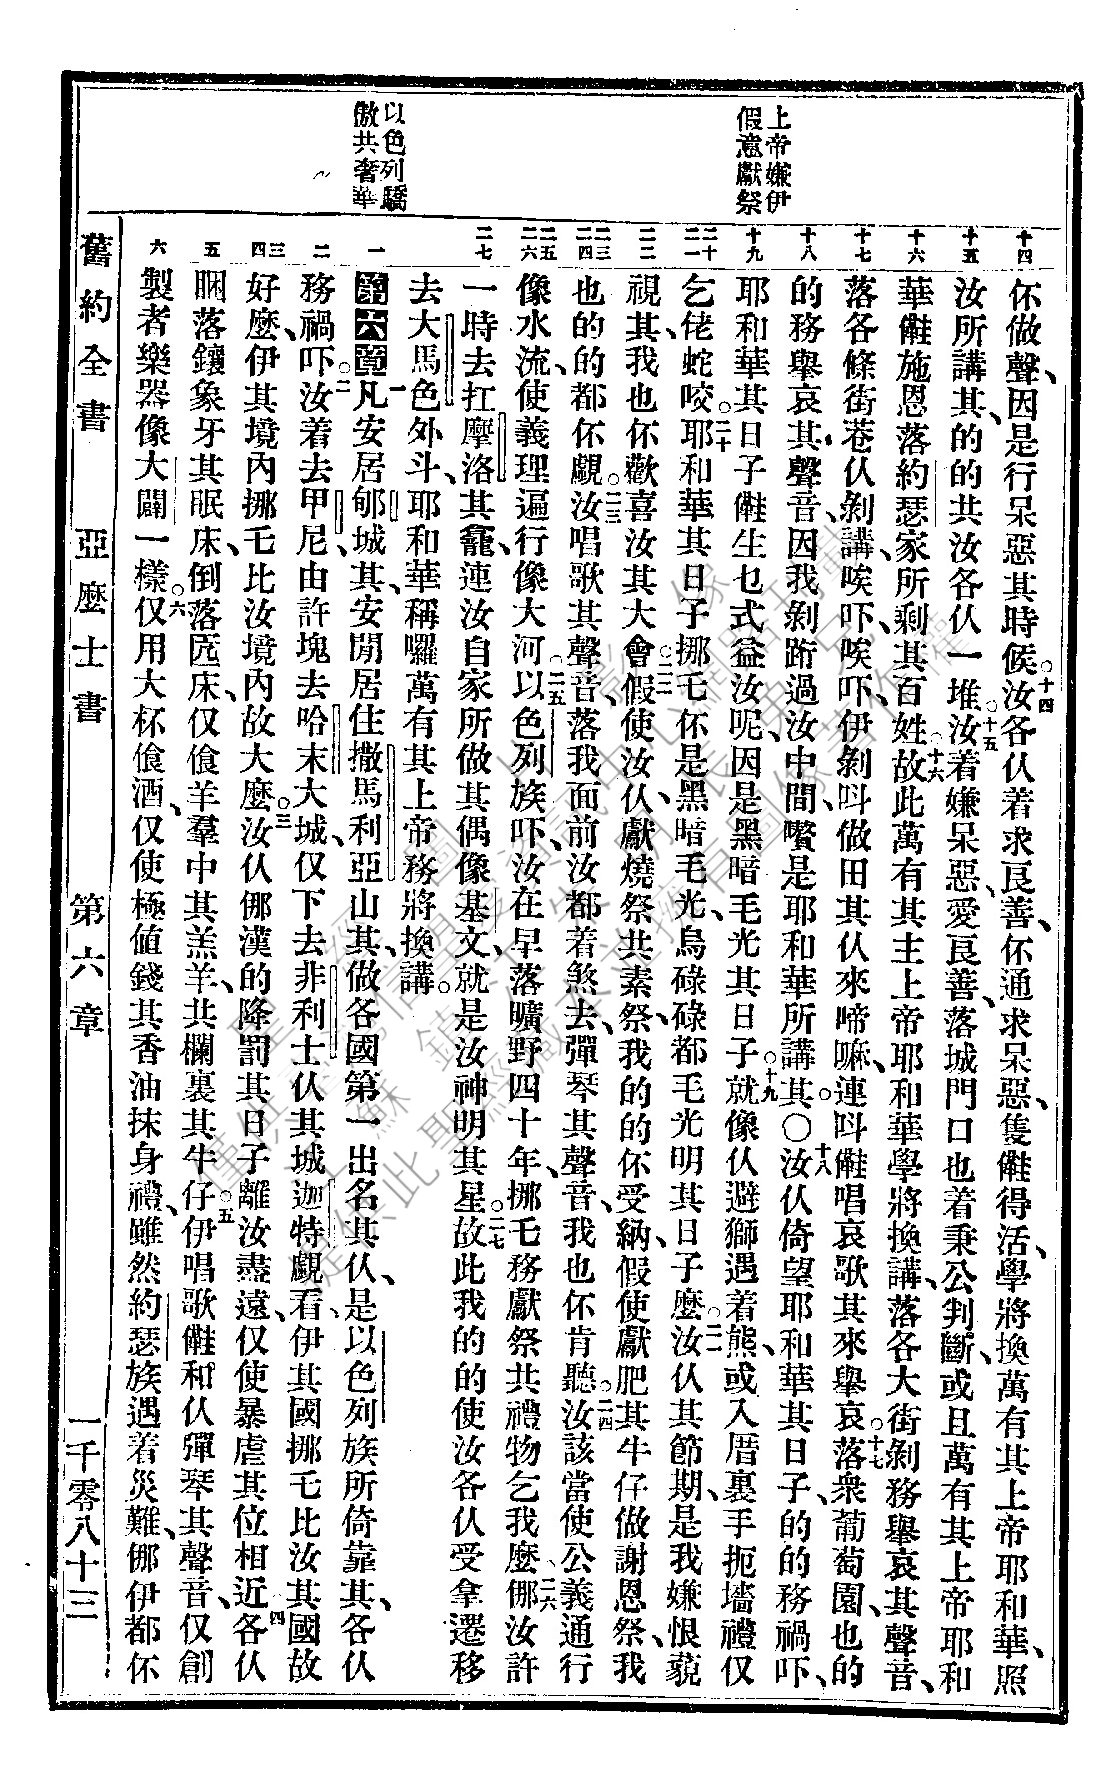 上帝嫌伊
假意獻祭
以色列驕
傲共奢華
十四
十五
十六
十七
十八
十九
二十
二一
二二
二三
二四
二五
二六
二七
一
二
三
四
五
六
伓做聲、因是行呆惡其時候。十四汝各仈着求良善、伓通求呆惡、隻㒰得活、學將換萬有其上帝耶和華、照
汝所講其、的的共汝各仈一堆。十五汝着嫌呆惡、愛良善、落城門口也着秉公判斷、或且萬有其上帝耶和
華㒰施恩落約瑟家所剩其百姓。十六故此萬有其主上帝耶和華學將換講、落各大街剝務舉哀其聲音、
落各條街巷仈剝講、唉吓、唉吓、伊剝呌做田其仈來啼嘛、連呌㒰唱哀歌其來舉哀。十七落衆葡萄園、也的
的務舉哀其聲音、因我剝跡過汝中間、嚽是耶和華所講其。〇十八汝仈倚望耶和華其日子、的的務禍吓、
耶和華其日子㒰生乜式益汝呢、因是黑暗毛光其日子。十九就像仈避獅遇着熊、或入厝裏手扼墻、禮仅
乞佬蛇咬。二十耶和華其日子、挪乇伓是黑暗毛光、烏碌碌都毛光明其日子麽。二一汝仈其節期、是我嫌恨藐
視其、我也伓歡喜汝其大會。二二假使汝仈獻燒祭共素祭、我的的伓受納、假使獻肥其牛仔做謝恩祭、我
也的的都伓覷。二三汝唱歌其聲音、落我面前汝都着煞去、彈琴其聲音、我也伓肯聽。二四汝該當使公義通行
像水流、使義理遍行像大河。二五以色列族吓、汝在早落曠野四十年、挪乇務獻祭共禮物乞我麽。二六㑚汝許
一時去扛摩洛其龕、連汝自家所做其偶像基文、就是汝神明其星。二七故此我的的使汝各仈受拿遷移
去大馬色外斗、耶和華稱囉萬有其上帝務將換講。
第六章 一凡安居郇城其、安閒居住撒馬利亞山其、做各國第一出名其仈、是以色列族所倚靠其、各仈
務禍吓。二汝着去甲尼、由許塊去哈末大城、仅下去非利士仈其城迦特覷看、伊其國挪乇比汝其國故
好麽、伊其境內挪乇比汝境內故大麽。三汝仈㑚漢的降罰其日子離汝盡遠、仅使暴虐其位相近。四各仈
𥄫落鑲象牙其眠床、倒落匟床、仅飡羊羣中其羔羊、共欄裏其牛仔。五伊唱歌㒰和仈彈琴其聲音、仅創
製者樂器像大闢一樣。六仅用大杯飡酒、仅使極値錢其香油抹身禮、雖然約瑟族遇着災難、㑚伊都伓
舊約全書　亞麽士書　第六章　一千零八十三